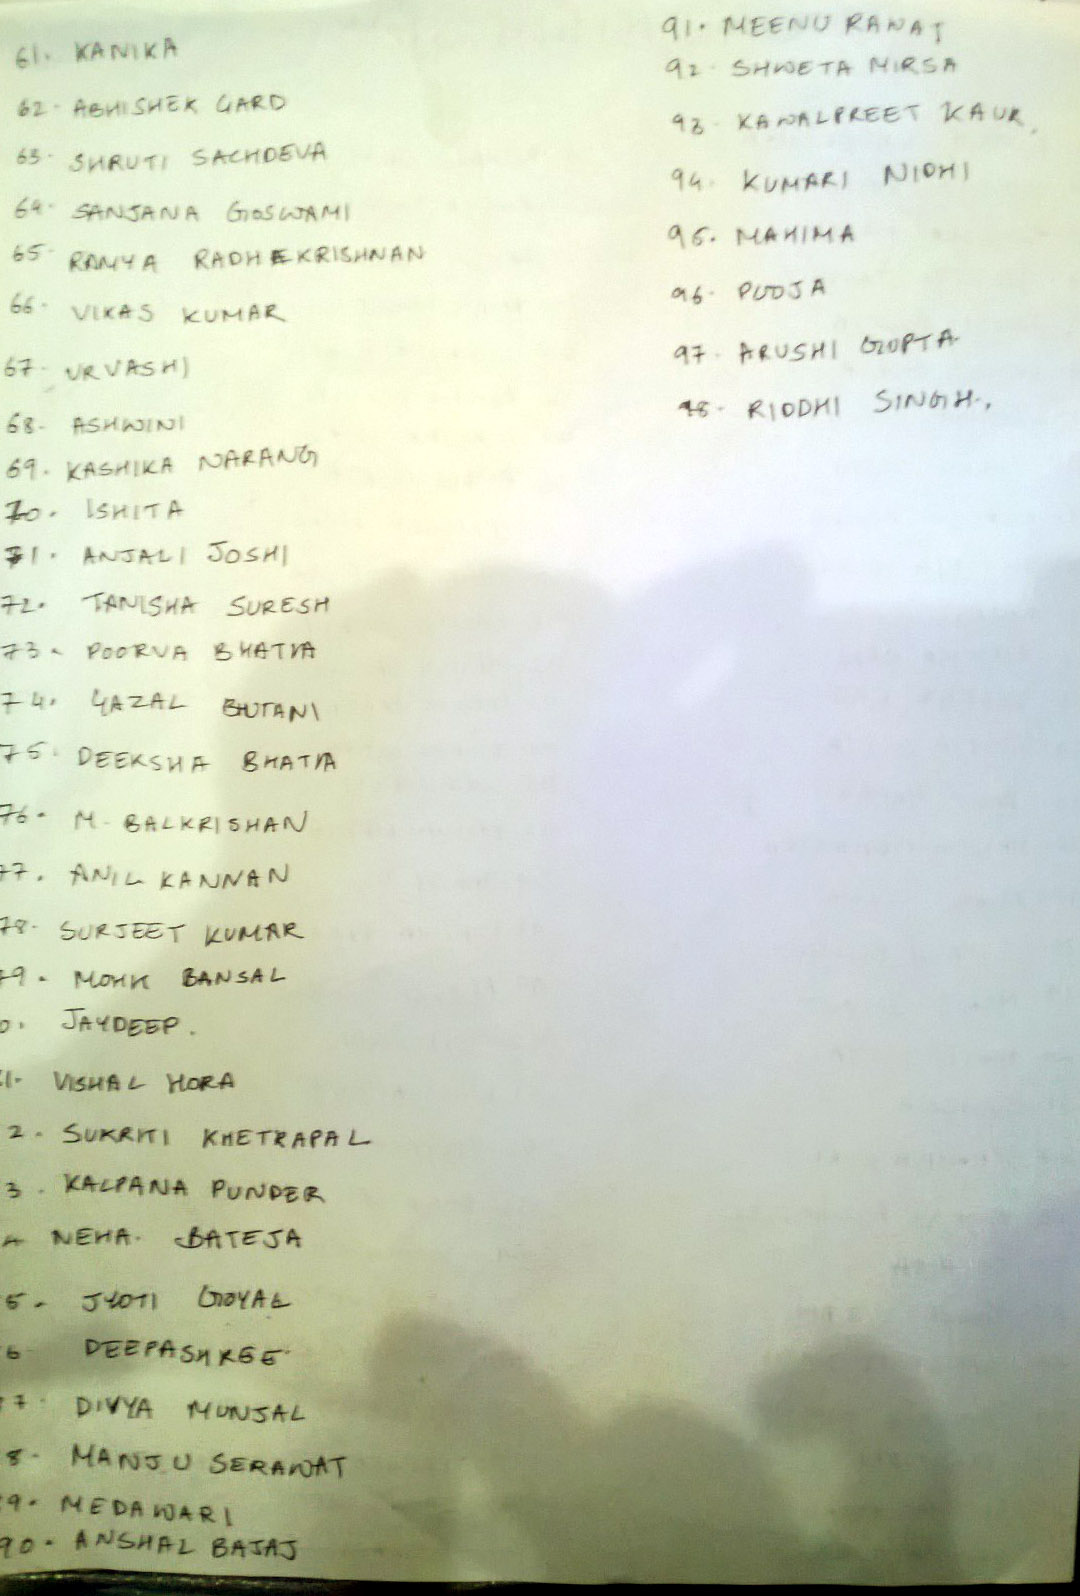 61. KANIKA
62. ABHISHEK GARD
63. SHRUTI SACHDEVA
64. SANJANA GOSWAMI
65. RAMYA RADHEKRISHNAN
66. VIKAS KUMAR
67. URVASHI
68. ASHWINI
69. KASHIKA NARANG
70. ISHITA
71. ANJALI JOSHI
72. TANISHA SURESH
73. POORVA BHATIA
74. GAZAL BHUTANI
75. DEEKSHA BHATIA
76. M. BALKRISHAN
77. ANIL KANNAN
78. SURJEET KUMAR
79. MOHK BANSAL
0. JAYDEEP.
1. VISHAL HORA
2. SUKRITI KHETRAPAL
3. KALPANA PUNDER
4 NEHA. BATEJA
5. JYOTI GOYAL
6 DEEPASHREE
7. DIVYA MUNJAL
8. MANJU SERAWAT
9. MEDAWARI
90. ANSHAL BAJAJ
91. MEENU RANAT
92. SHWETA MIRSA
93. KAWALPREET KAUR.
94. KUMARI NIDHI
95. MAHIMA
96. POOJA
97. ARUSHI GUPTA
98. RIDDHI SINGH.